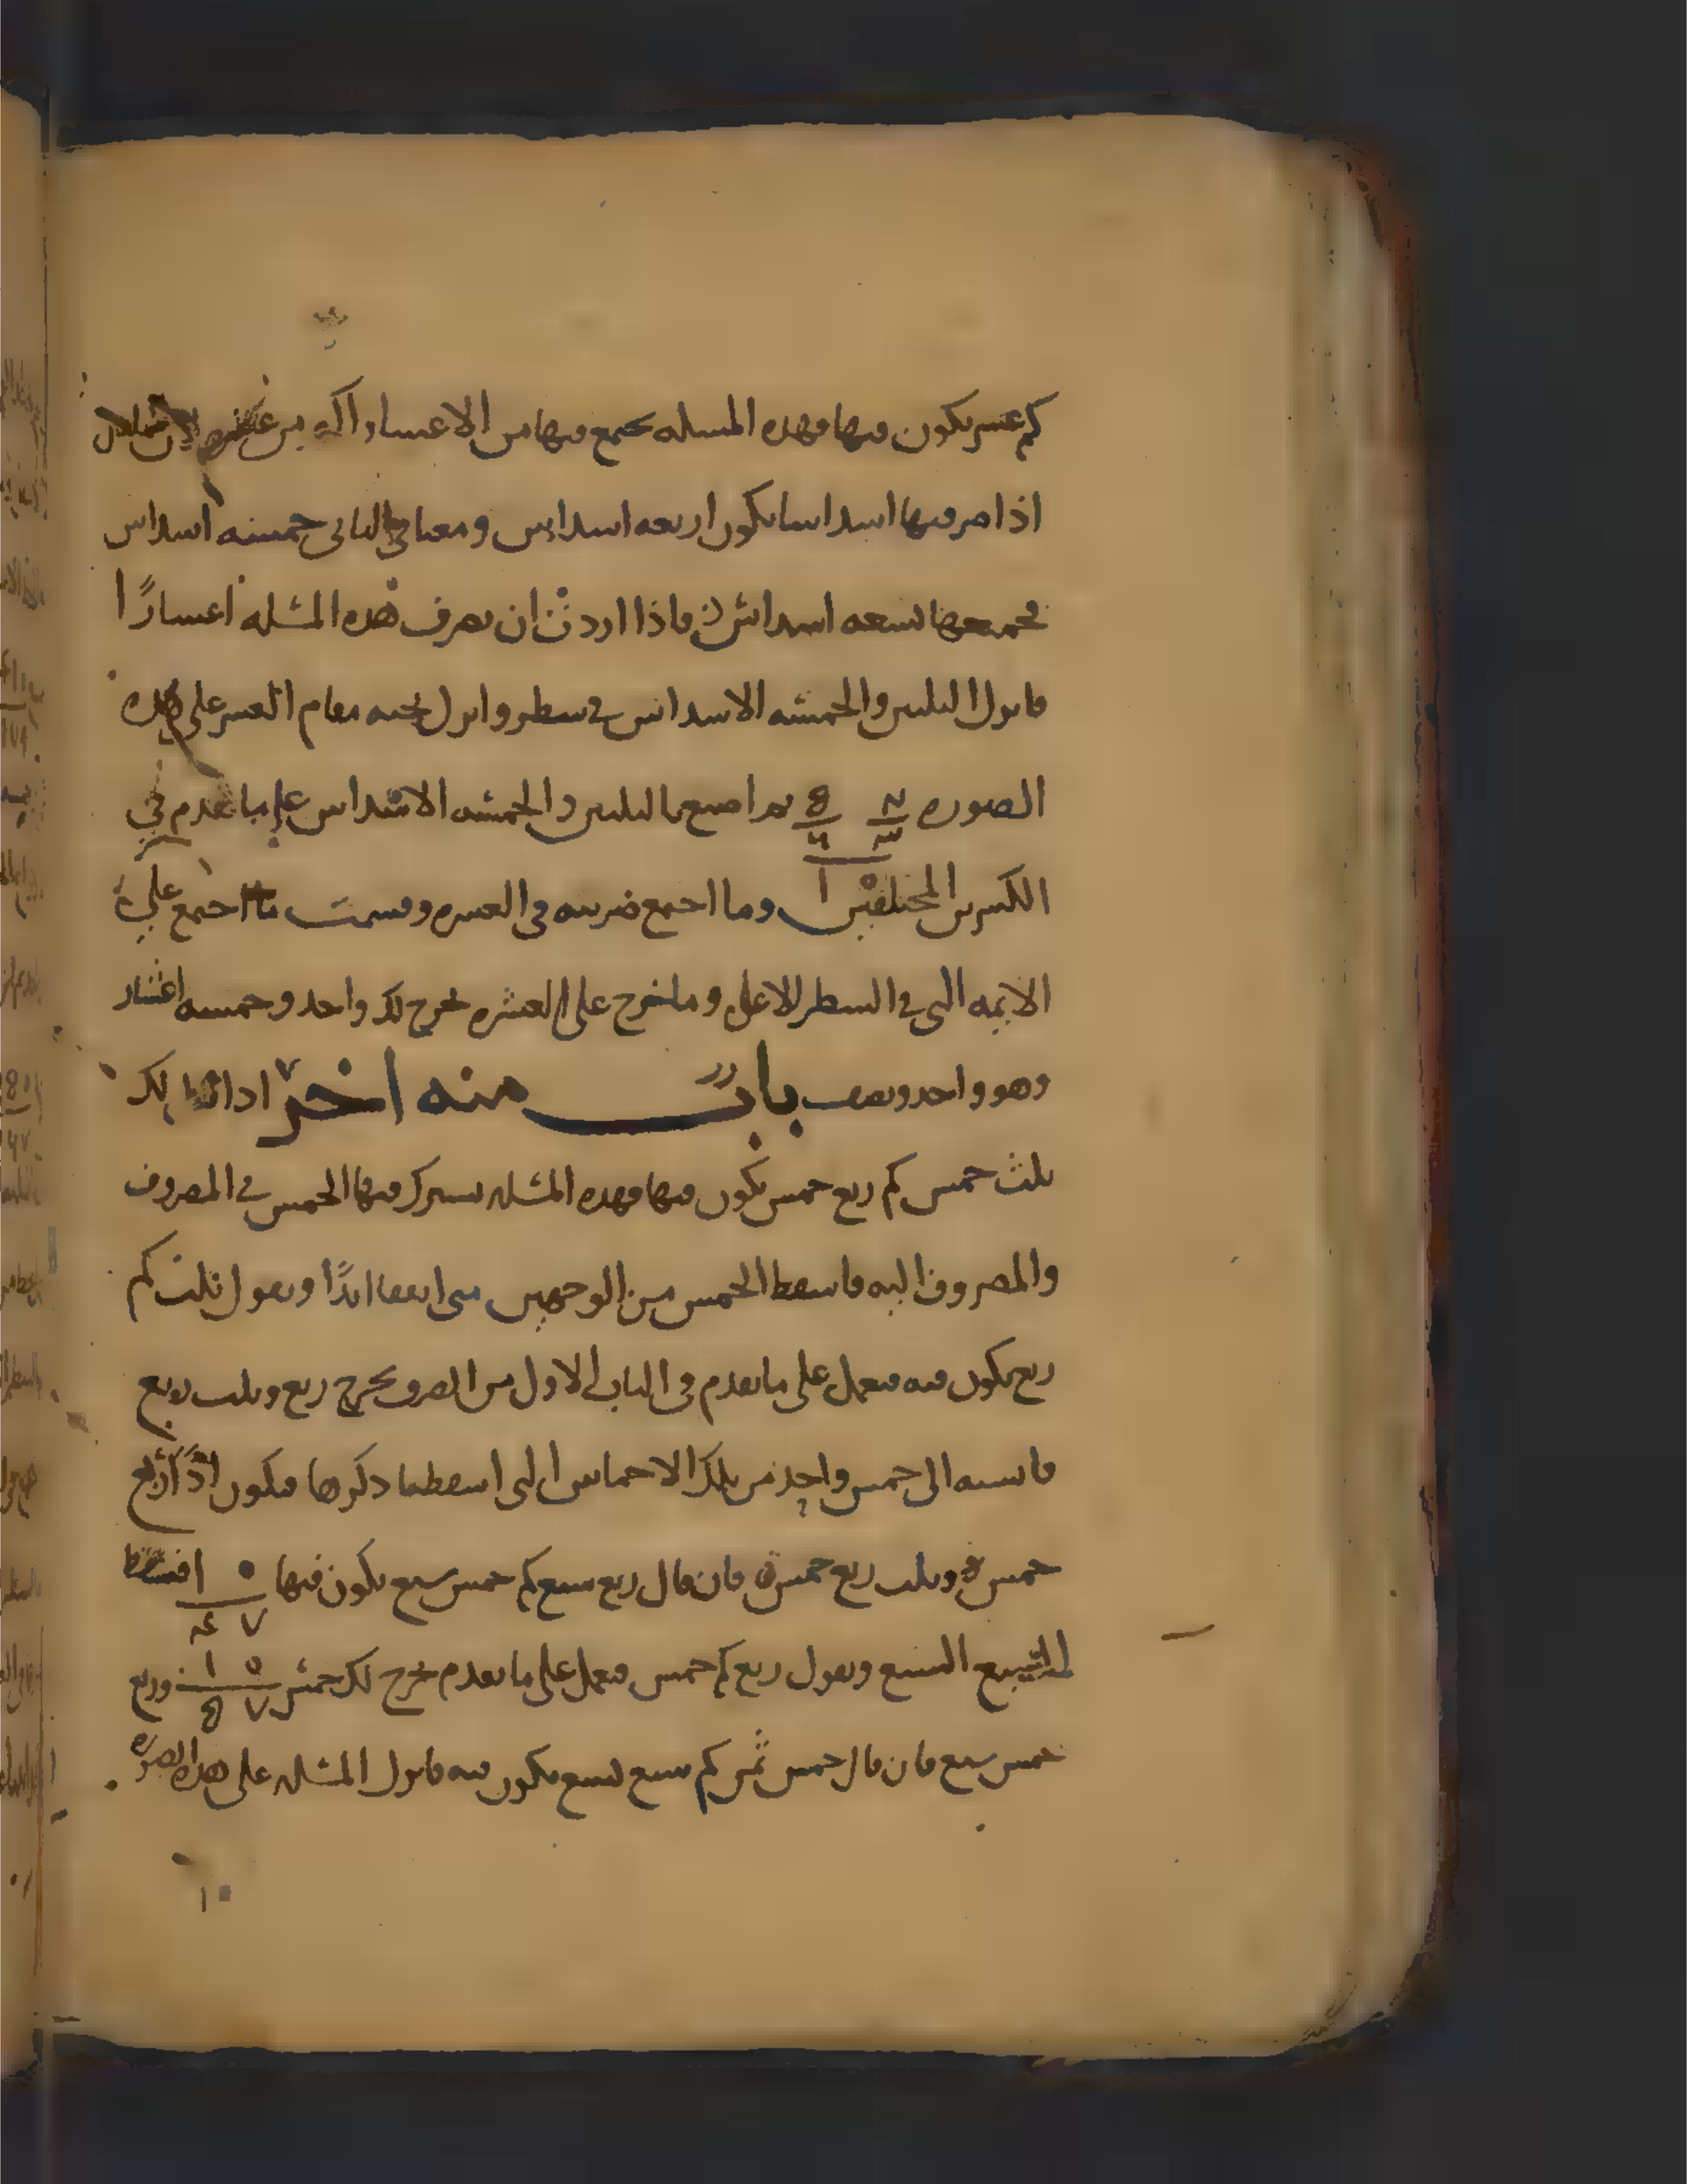 كم عشر يكون فيها فهذه المسله يجتمع فيها من الاعشار اكثر من
اذا صرفتها اسداسا يكون اربعه اسداس ومعنا في الثاني خمسه اسداس
فجميعها تسعه اسداس فاذا اردت ان تصرف هذه المسله اعشارًا
فانزل الثلثين والخمسه الاسداس في سطر وانزل تحته مقام العشر على هذه
الصوره ثم اصنع بالثلثين والخمسه الاسداس على ما تقدم في
الكسرين المختلفين وما اجتمع ضربته في العشره وقسمت ما اجتمع على
الايمه التي في السطر الاعلى وما خرج على العشره يخرج لك واحد وخمسه اعشار
وهو واحد ونصف باب منه اخر اذا قال لك
ثلث خمس كم ربع خمس يكون فيها فهذه المسله يشترك فيها الخمس في المصروف
والمصروف اليه فاسقط الخمس من الوجهين متى اتفقا ابدًا وتقول ثلث كم
ربع يكون فيه فتعمل على ما تقدم في الباب الاول من الصرف يخرج ربع وثلث ربع
فانسبه الى خمس واحد من تلك الاخماس التي اسقطنا ذكرها فيكون اذًا ربع
خمس وثلث ربع خمس فان قال ربع سبع كم خمس سبع يكون فيها ٥ ١ فتسقط ٧ ٤
السبع وتقول ربع كم خمس فتعمل على ما تقدم يخرج لك خمس وربع
خمس سبع فان قال خمس ثمن كم سبع تسع يكون فيه فانزل المسله على هذه الصوره